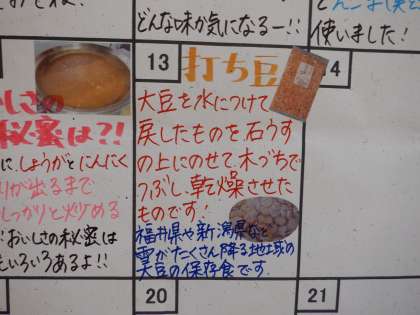 どんな味か気になるー!!
使いました!
13
打ち豆
大豆を水につけて
戻したものを石うす
の上にのせて、木づちで
つぶし、乾燥させた
ものです!
福井県や新潟県など
雪がたくさん降る地域の
大豆の保存食です。
4
しさの
秘蜜は?!
に、しょうがとにんにく
りが出るまで
しっかりと炒める
おいしさの秘蜜は
いろいろあるよ!!
20
21